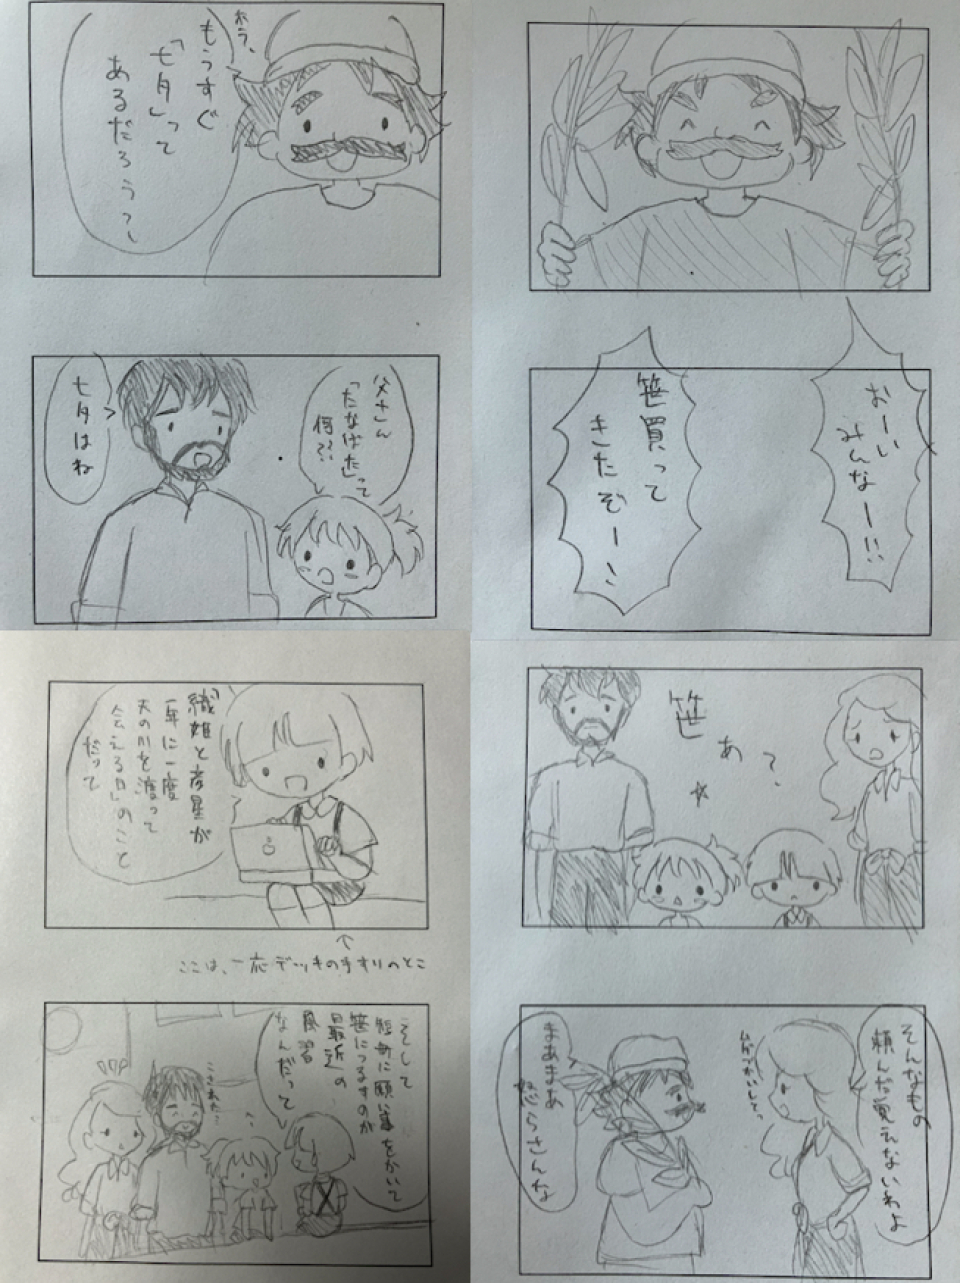 おーい
みんなー!!
笹買って
きたぞー!
笹
あ?
そんなもの
頼んだ覚えないわよ
まあまあ
怒らさんな
ホラ、
もうすぐ
「七夕」って
あるだろう?
父さん
「たなばた」って
何??
七夕はね
織姫と彦星が
一年に一度
天の川を渡って
会える日」のこと
だって
ここは、一応デッキの手すりのとこ
そして
短冊に願い事をかいて
笹につるすのが
最近の
風習
なんだって